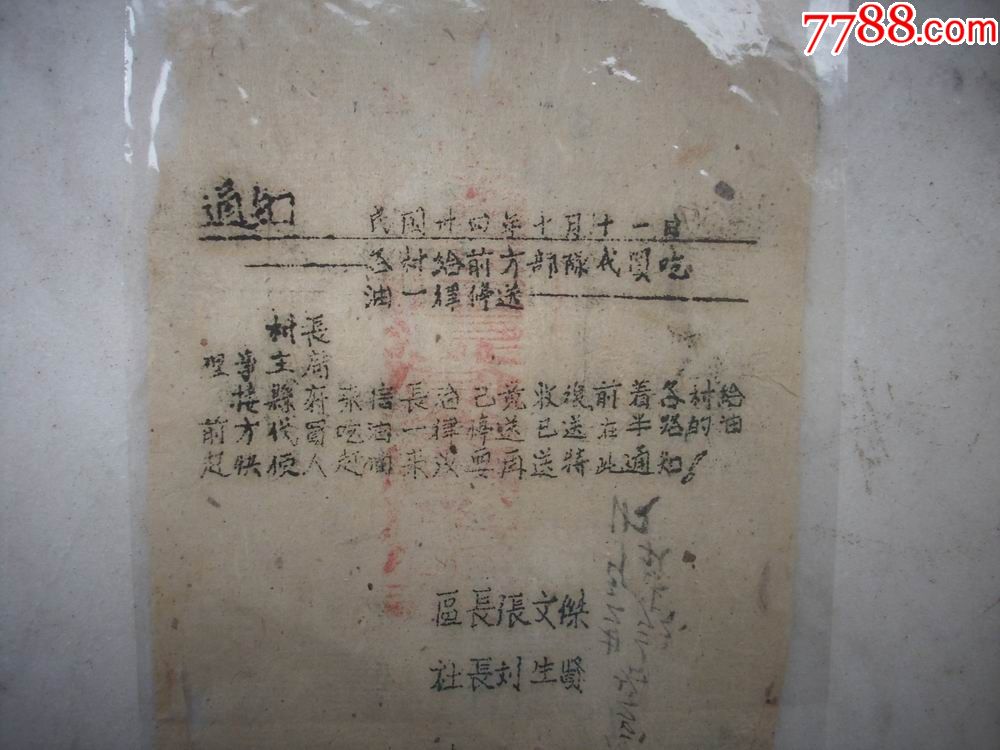 7788.com
中國收藏熱線
通知 民國卅四年十月十一日
各村給前方部隊代買吃
油一律停送
村長
理事主席
接縣府來信長治已竟收復前着各村給
前方代買吃油一律停送已送在半路的油
赶快使人赶回來 要再送特此通知！
區長張文傑
社長刘生賢